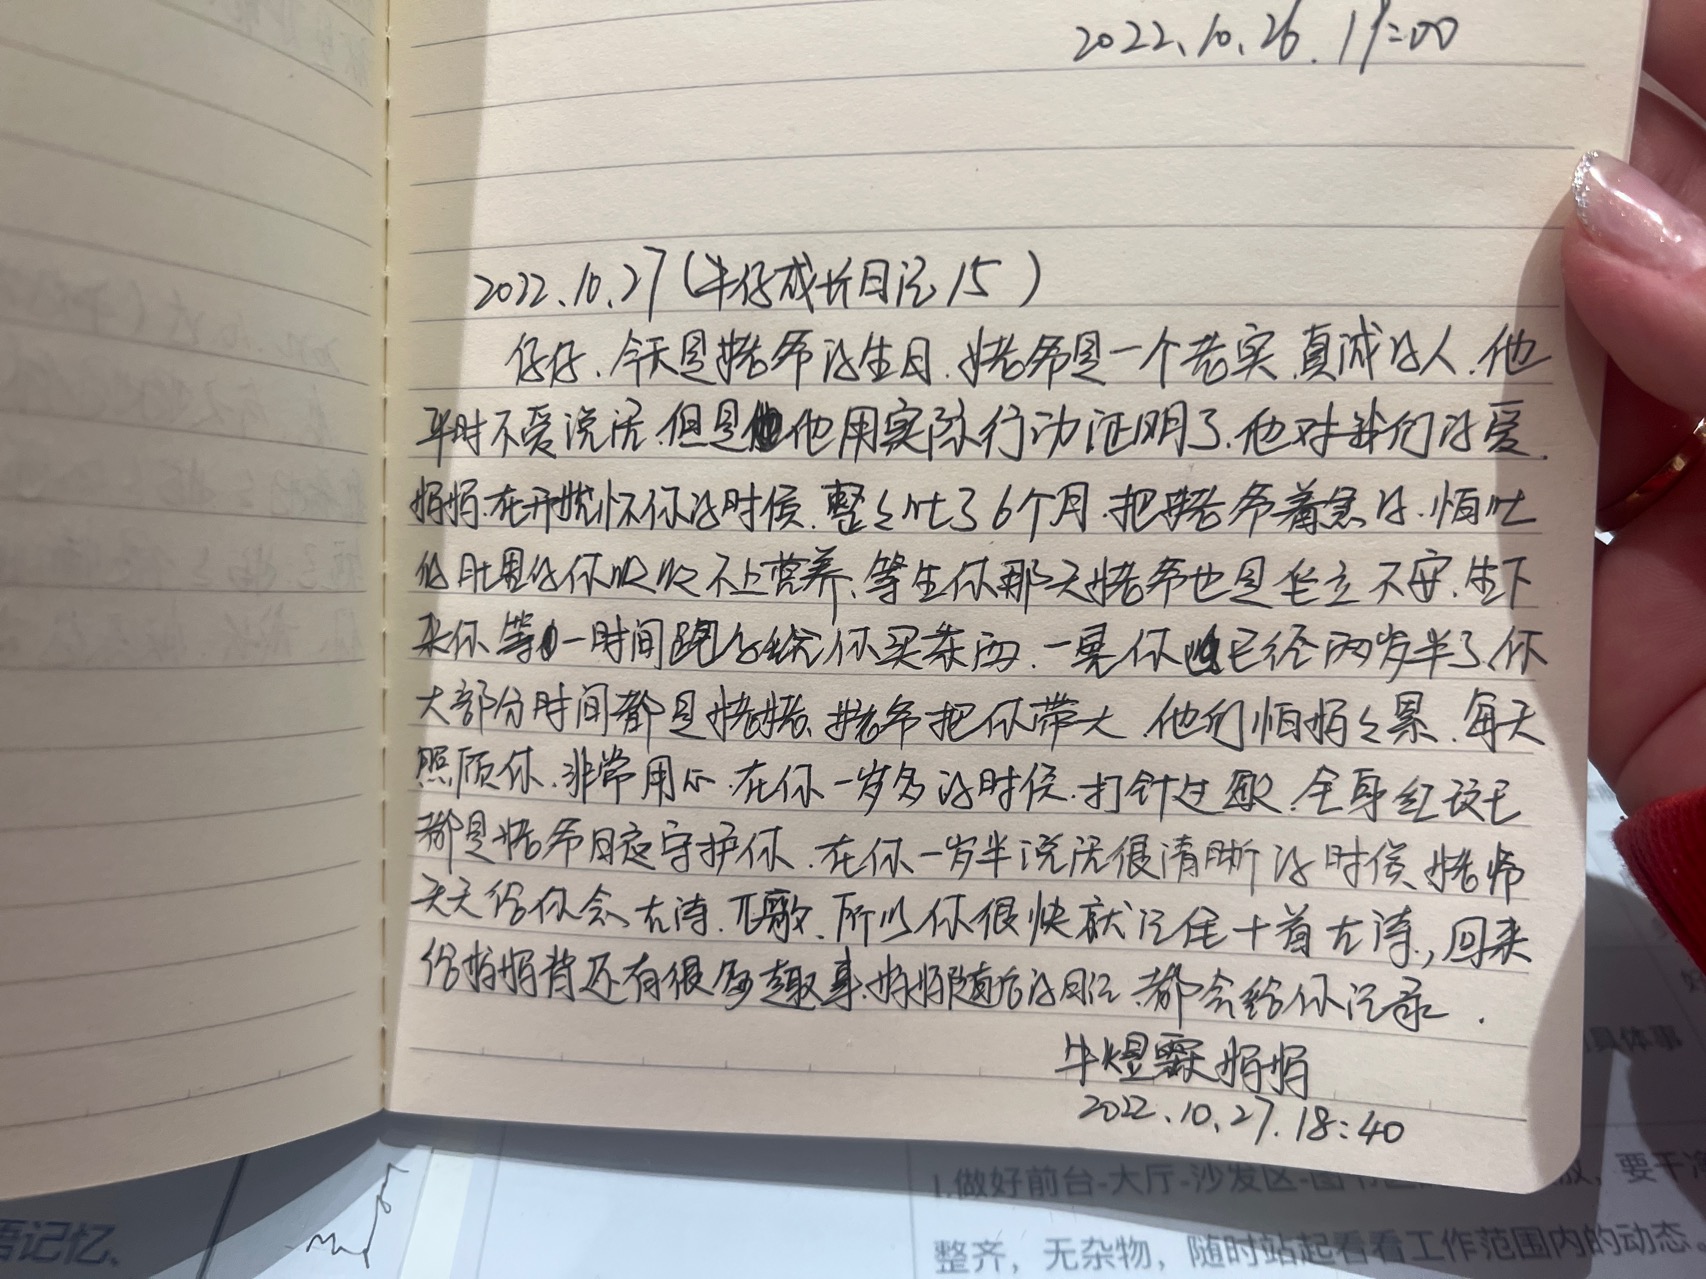 2022.10.26.19:00
2022.10.27(牛仔成长日记15)
仔仔、今天是姥爷的生日、姥爷是一个老实、真诚的人、他
平时不爱说话、但是他用实际行动证明了、他对我们的爱、
妈妈在开始怀你的时候、整々吐了6个月、把姥爷着急的、怕吐
的肚里的你吸收不上营养、等生你那天姥爷也是坐立不安、生下
来你第一时间跑的给你买东西、一晃你已经两岁半了、你
大部分时间都是姥姥、姥爷把你带大、他们怕妈々累、每天
照顾你、非常用心、在你一岁多的时候、打针过敏、全身红疹
都是姥爷日夜守护你、在你一岁半说话很清晰的时候、姥爷
天天给你念古诗、儿歌、所以你很快就记住十首古诗,回来
给妈妈背还有很多趣事、妈妈随后的日记、都会给你记录.
牛煜霖妈妈
2022.10.27.18:40
语记忆、
1.做好前台-大厅-沙发区-图书区 放，要干净
整齐，无杂物，随时站起看看工作范围内的动态。
具体事